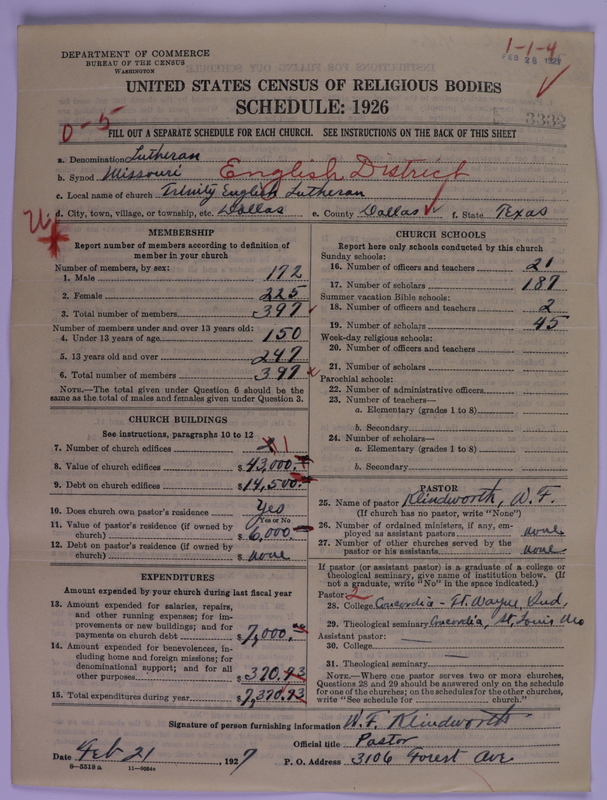 DEPARTMENT OF COMMERCE
BUREAU OF THE CENSUS
WASHINGTON
1-1-4
FEB 26 1927
UNITED STATES CENSUS OF RELIGIOUS BODIES
SCHEDULE: 1926
3332
0-5
FILL OUT A SEPARATE SCHEDULE FOR EACH CHURCH. SEE INSTRUCTIONS ON THE BACK OF THIS SHEET
a. Denomination Lutheran
b. Synod Missouri English District
c. Local name of church Trinity English Lutheran
d. City, town, village, or township, etc. Dallas e. County Dallas f. State Texas
U
MEMBERSHIP
Report number of members according to definition of
member in your church
Number of members, by sex:
1. Male 172
2. Female 225
3. Total number of members 397
Number of members under and over 13 years old:
4. Under 13 years of age 150
5. 13 years old and over 247
6. Total number of members 397
NOTE.—The total given under Question 6 should be the
same as the total of males and females given under Question 3.
CHURCH BUILDINGS
See instructions, paragraphs 10 to 12
7. Number of church edifices 1
8. Value of church edifices $ 43,000.
9. Debt on church edifices $ 14,500.
10. Does church own pastor's residence? Yes
Yes or No
11. Value of pastor's residence (if owned by
church) $ 6,000.
12. Debt on pastor's residence (if owned by
church) $ none
EXPENDITURES
Amount expended by your church during last fiscal year
13. Amount expended for salaries, repairs,
and other running expenses; for im-
provements or new buildings; and for
payments on church debt $ 7,000.
14. Amount expended for benevolences, in-
cluding home and foreign missions; for
denominational support; and for all
other purposes $ 370.93
15. Total expenditures during year $ 7,370.93
CHURCH SCHOOLS
Report here only schools conducted by this church
Sunday schools:
16. Number of officers and teachers 21
17. Number of scholars 187
Summer vacation Bible schools:
18. Number of officers and teachers 2
19. Number of scholars 45
Week-day religious schools:
20. Number of officers and teachers
21. Number of scholars
Parochial schools:
22. Number of administrative officers
23. Number of teachers—
a. Elementary (grades 1 to 8)
b. Secondary
24. Number of scholars—
a. Elementary (grades 1 to 8)
b. Secondary
PASTOR
25. Name of pastor Klindworth, W. F.
(If church has no pastor, write "None")
26. Number of ordained ministers, if any, em-
ployed as assistant pastors none
27. Number of other churches served by the
pastor or his assistants none
If pastor (or assistant pastor) is a graduate of a college or
theological seminary, give name of institution below. (If
not a graduate, write "No" in the space indicated.)
Pastor: 2
28. College Concordia - Ft. Wayne Ind.
29. Theological seminary Concordia, St. Louis Mo
Assistant pastor:
30. College
31. Theological seminary
NOTE.—Where one pastor serves two or more churches,
Questions 28 and 29 should be answered only on the schedule
for one of the churches; on the schedules for the other churches,
write "See schedule for church."
Signature of person furnishing information W. F. Klindworth
Official title Pastor
Date Feb 21, 1927 P. O. Address 3106 Forest Ave
8-5318 a 11-9084